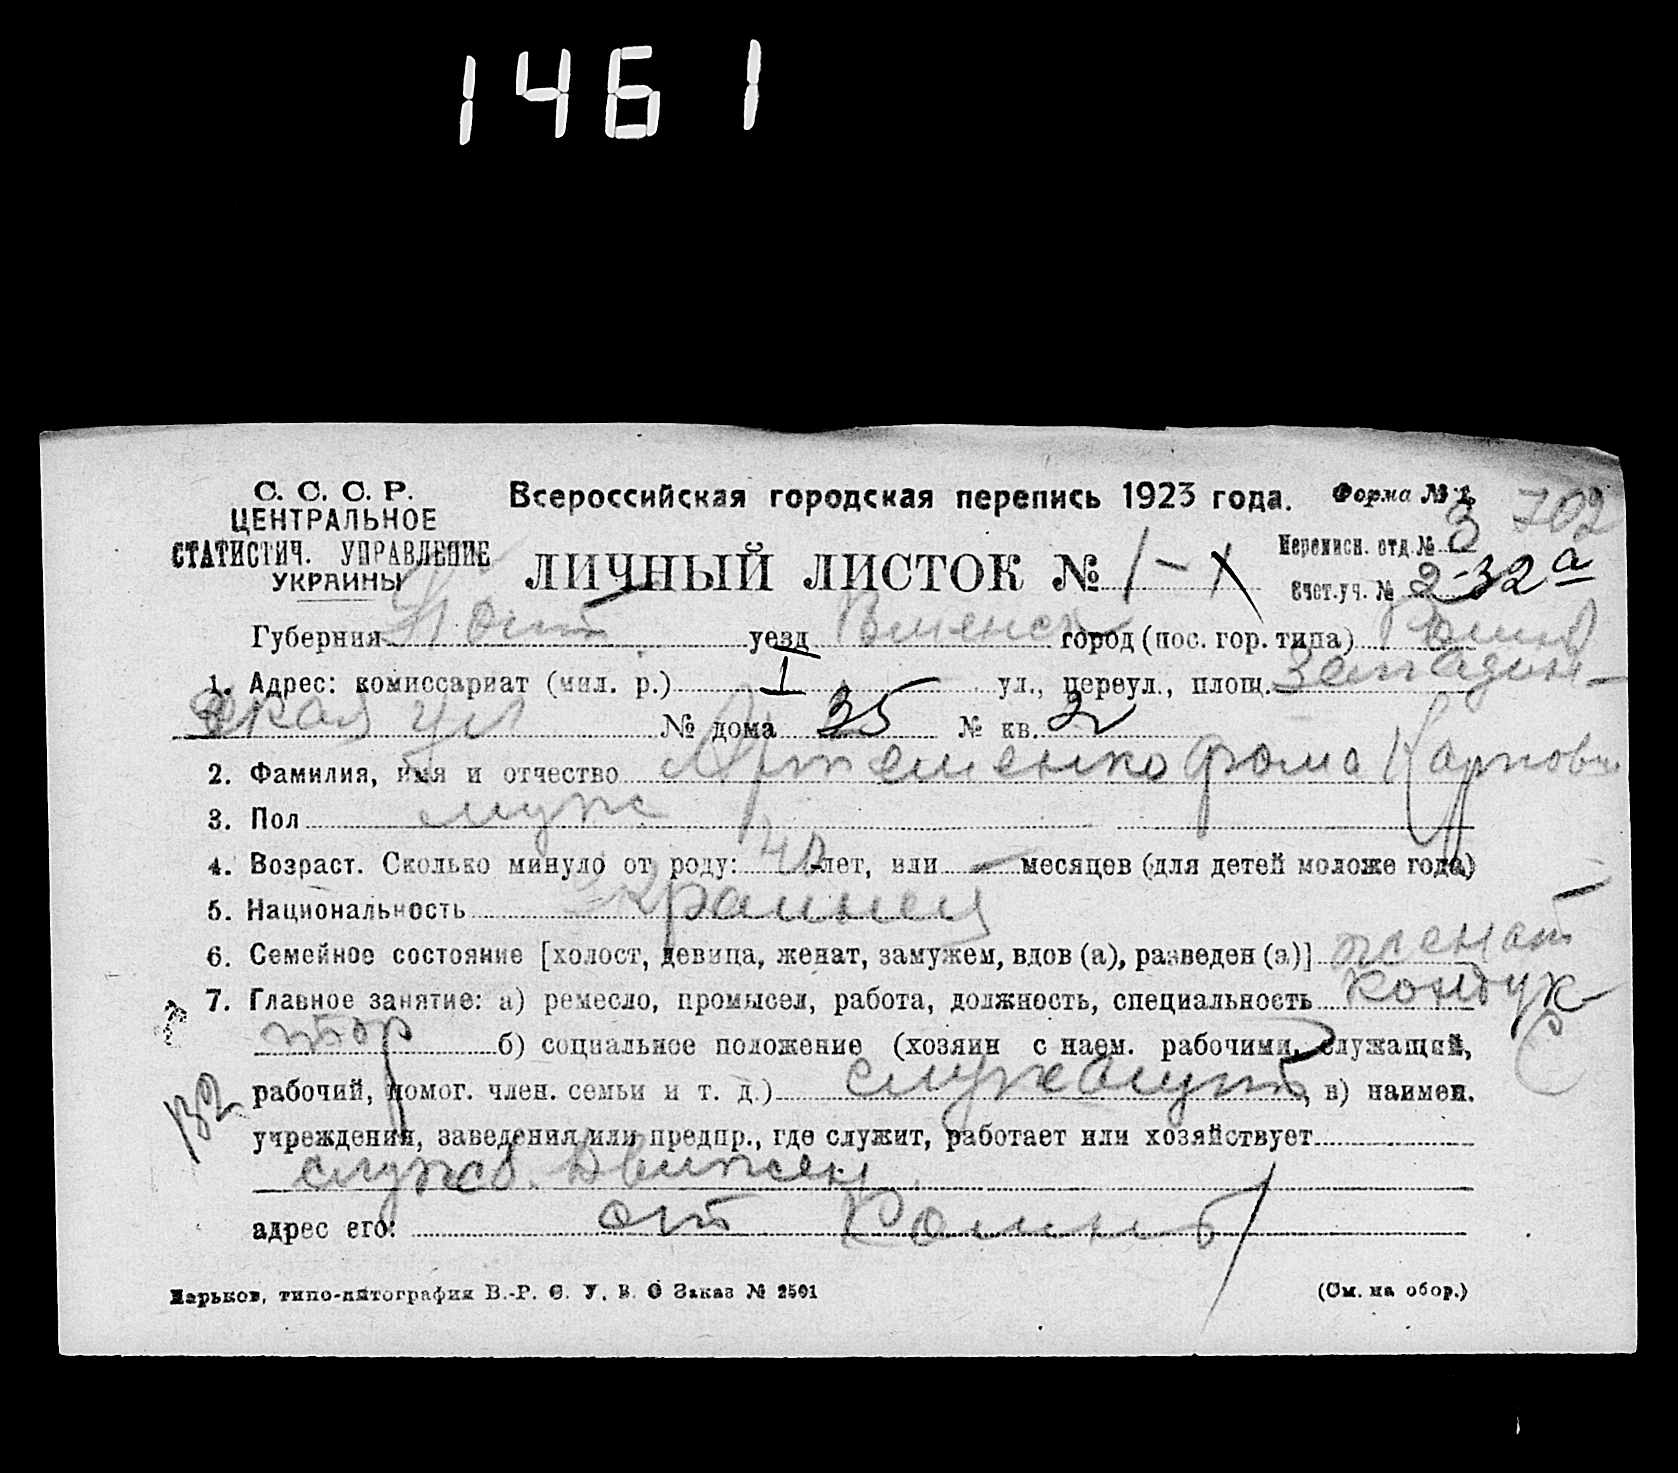 1461
С. С. С. Р.
ЦЕНТРАЛЬНОЕ
СТАТИСТИЧ. УПРАВЛЕНИЕ
УКРАИНЫ
Всероссийская городская перепись 1923 года.
Форма № 1.
702
ЛИЧНЫЙ ЛИСТОК № 1-
Переписн. отд. № 3
Счет. уч. № 2-32 а
Губерния Полт уезд Роменск город (пос. гор. типа) Ромны
1. Адрес: комиссариат (мил. р.) I ул., переул., площ. Западин-
ская ул № дома 35 № кв. 3
2. Фамилия, имя и отчество Артеменко Фома Карпович
3. Пол муж
4. Возраст. Сколько минуло от роду: лет, или — месяцев (для детей моложе года)
5. Национальность Украинец
6. Семейное состояние [холост, девица, женат, замужем, вдов (а), разведен (а)] женат
7. Главное занятие: а) ремесло, промысел, работа, должность, специальность кондук-
тор б) социальное положение (хозяин с наем. рабочими, служащий,
рабочий, помог. член. семьи и т. д.) служащий, в) наимен.
132
учреждения, заведения или предпр., где служит, работает или хозяйствует
служб. Движен
адрес его: ст Ромны
Харьков, типо-литография В.-Р. С. У. В. О Заказ № 2501
(См. на обор.)